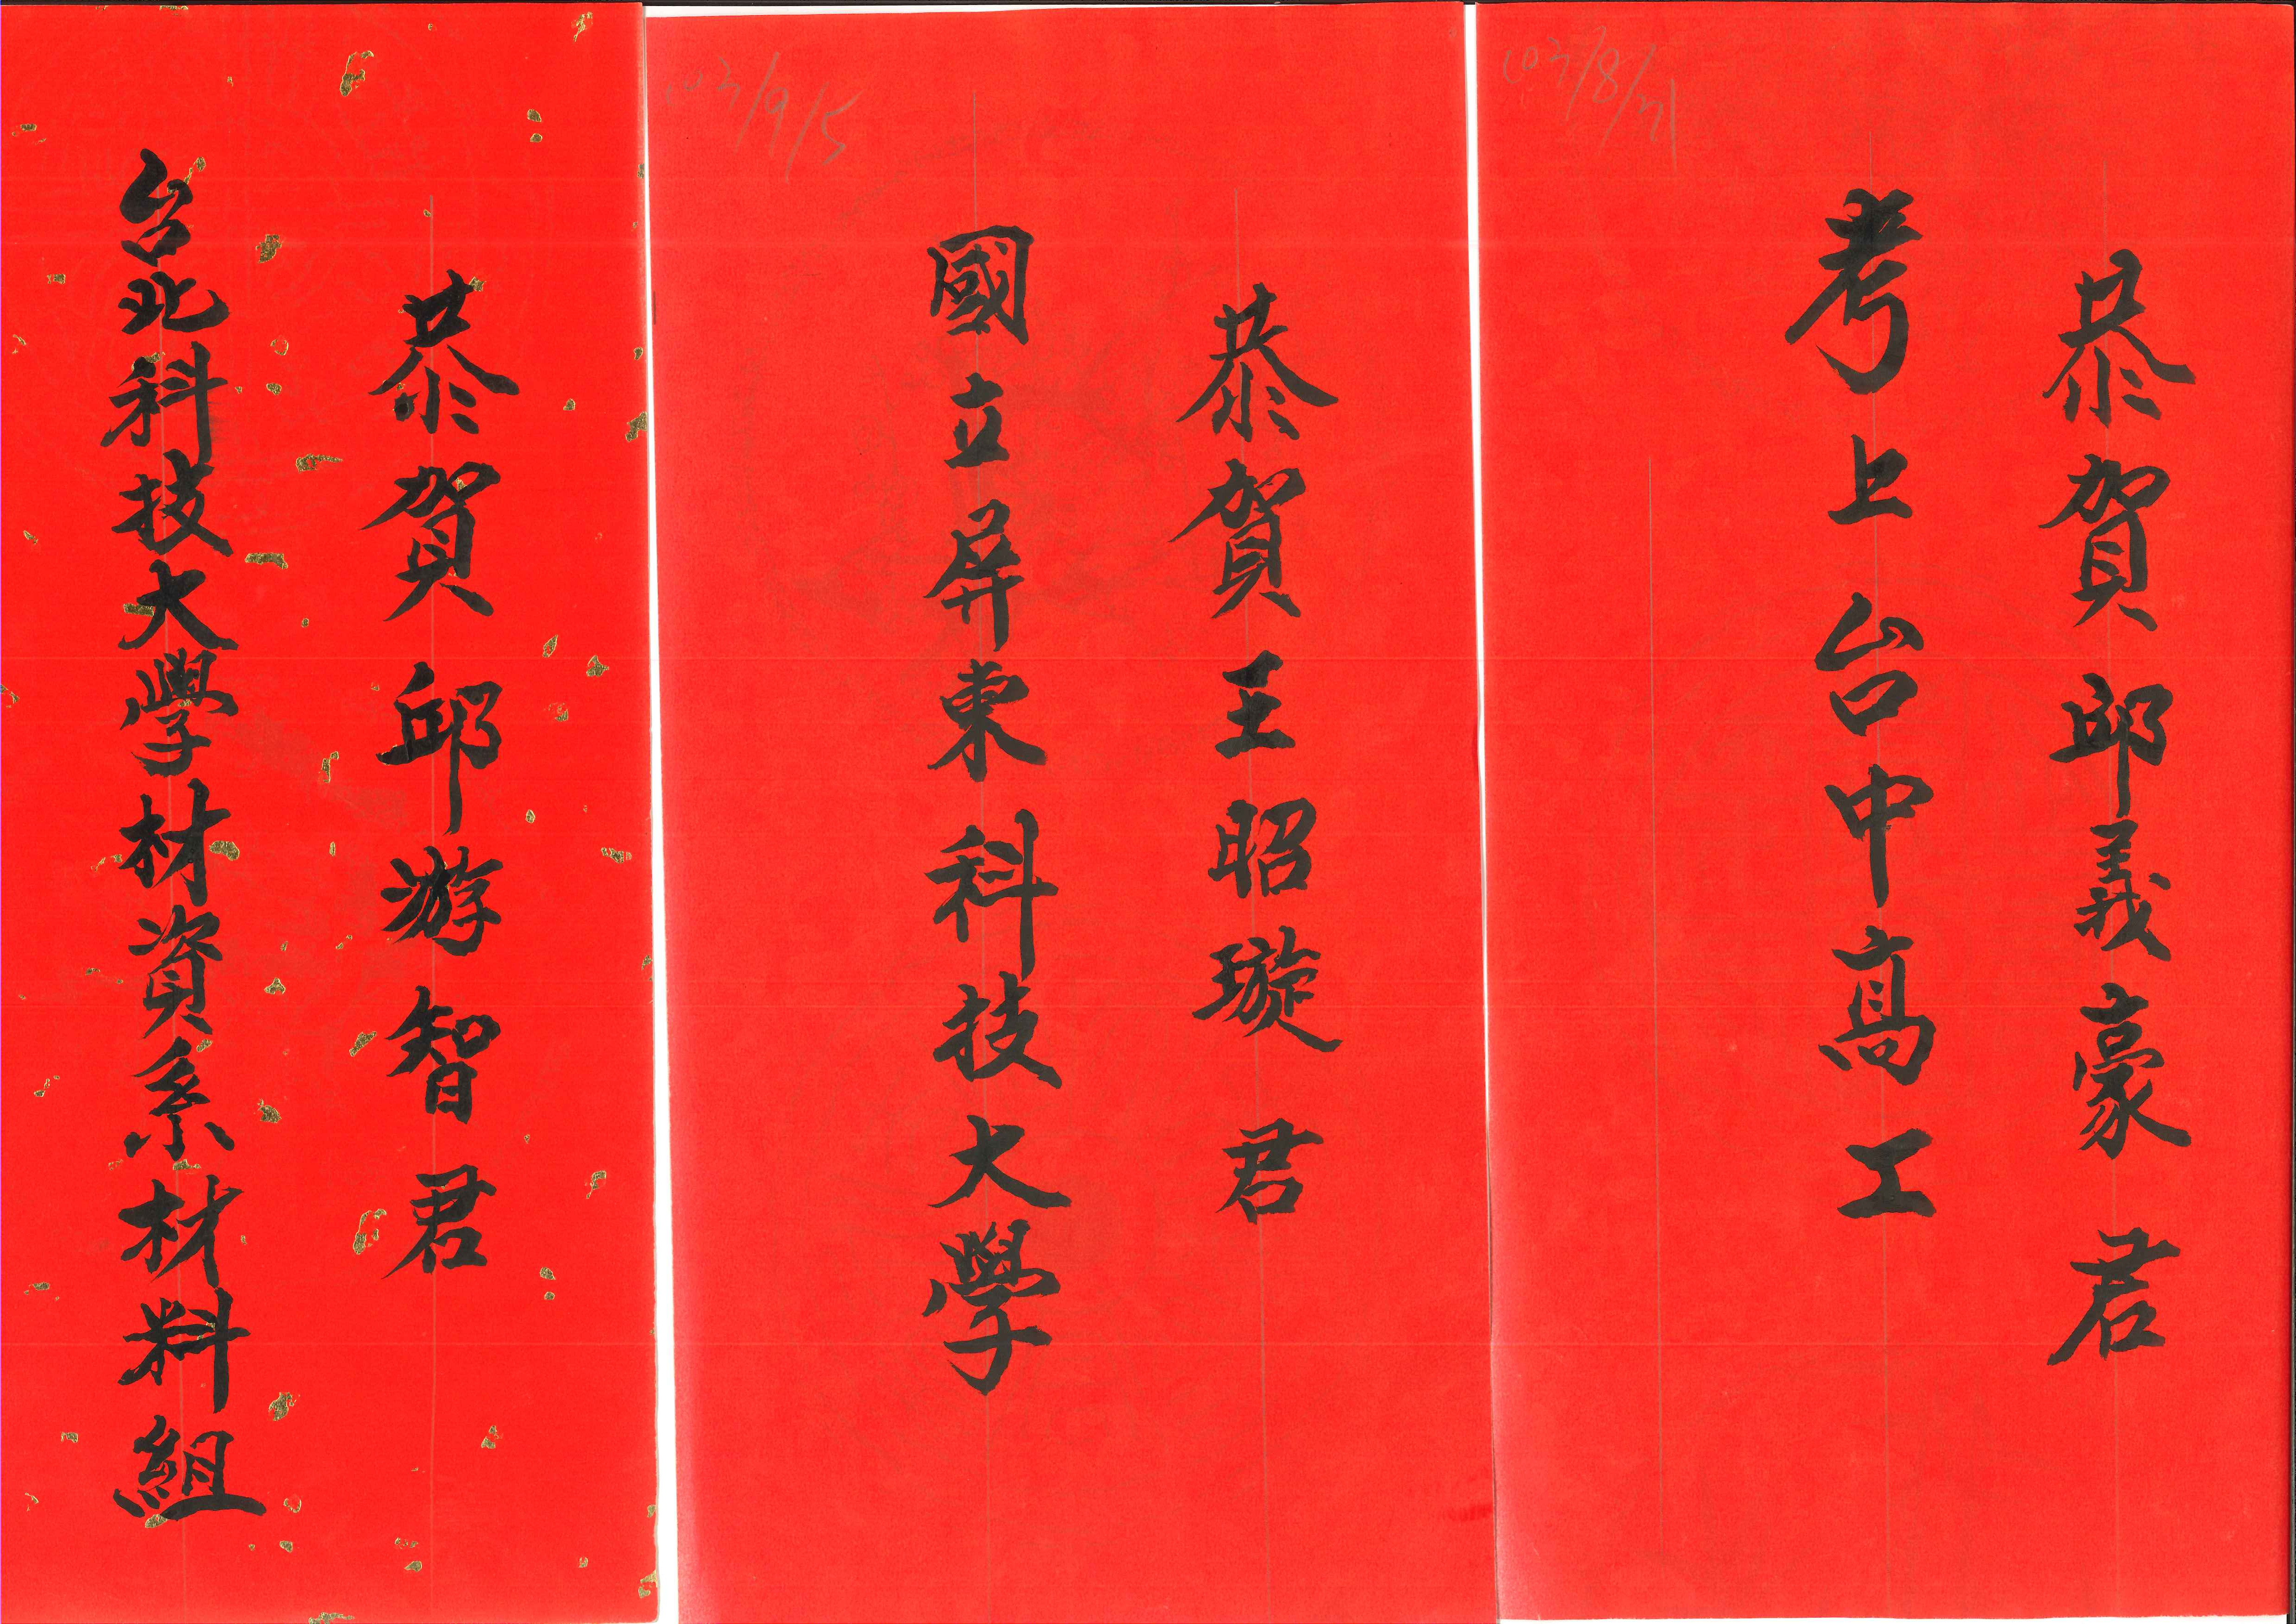 103/8/21
恭賀 邱義豪 君
考上台中高工
103/9/5
恭賀王昭璇 君
國立屏東科技大學
恭賀 邱游智君
台北科技大學材資系材料組